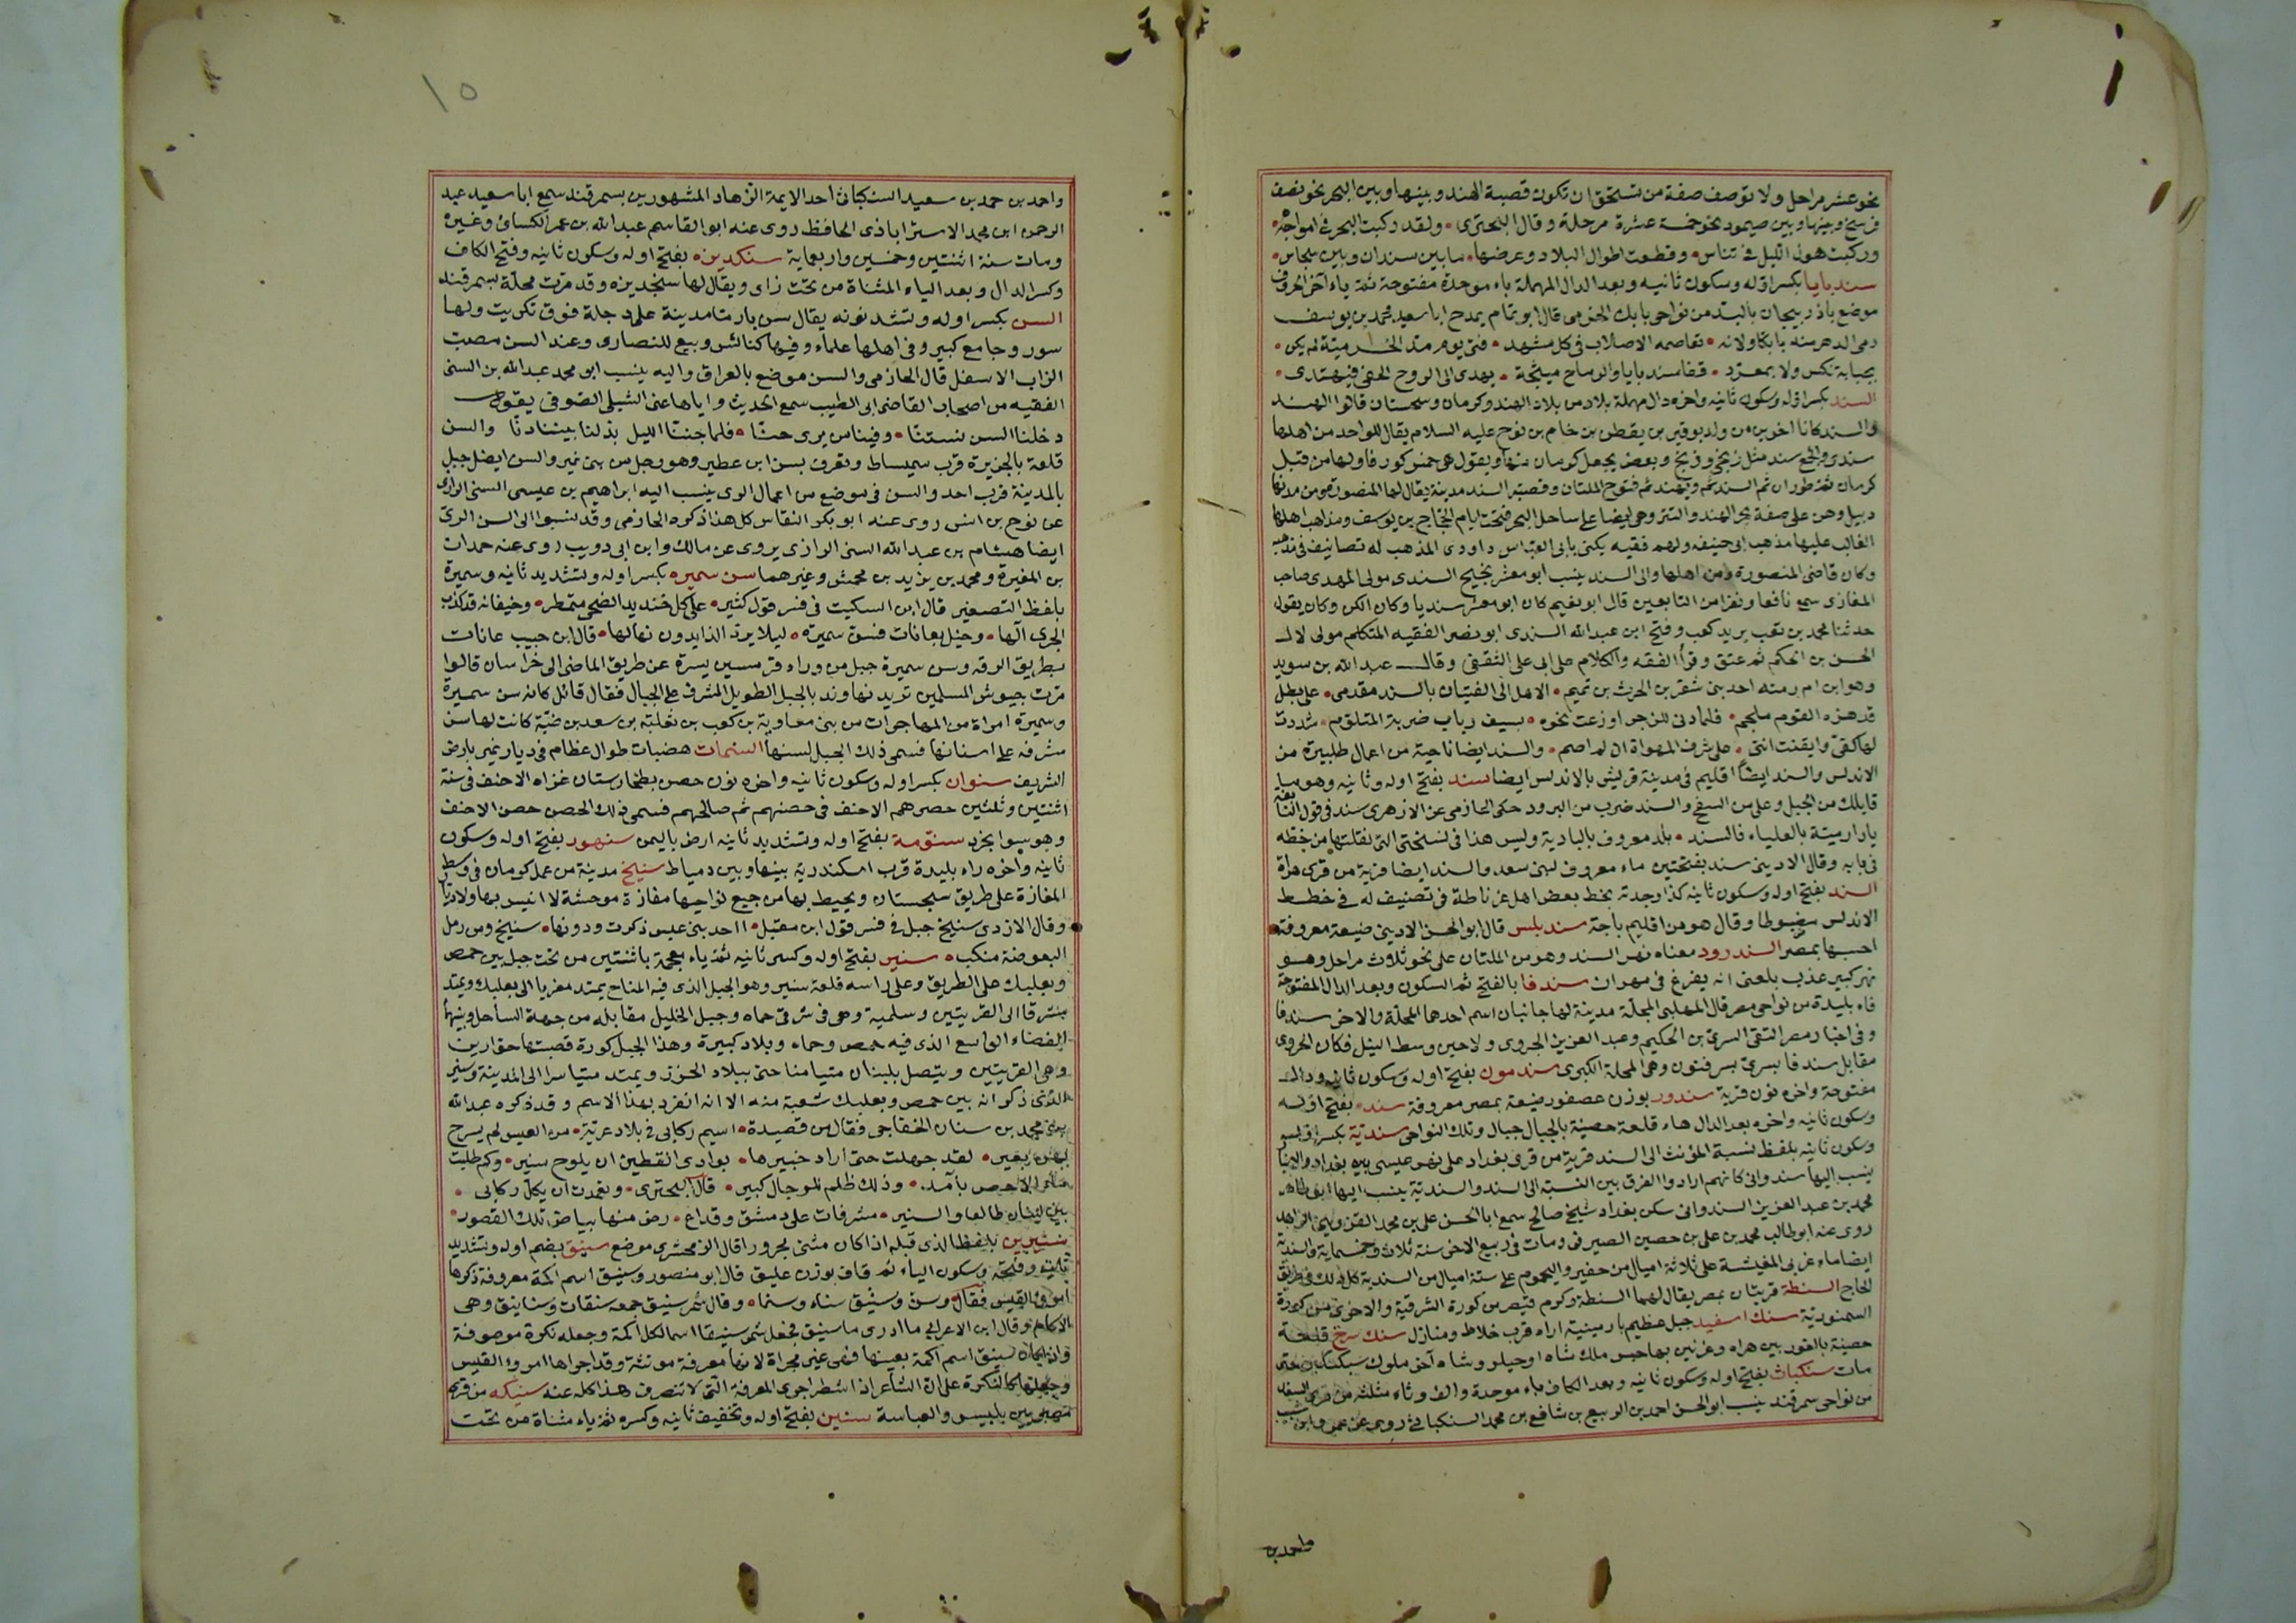 نحو عشر مراحل ولا توصف صفة من تستحق ان تكون قصبة الهند وبينها وبين البحر نحو نصف
فرسخ وبينها وبين صيمور نحو خمسة عشرة مرحلة وقال البحترى ولقد ركبت البحر فى امواجه
وركبت هول الليل فى تناس وقطعت اطوال البلاد وعرضها ما بين سندان وبين سجاس
سندبايا بكسر اوله وسكون ثانيه وبعد الدال المهملة باء موحدة مفتوحة ثمة ياء آخر الحروف
موضع باذربيجان بالبذ من نواحى بابك الخرمى قال ابو تمام يمدح ابا سعيد محمد بن يوسف
رمى الدهر منه بابكا ولاته تقاصمه الاصلاب فى كل مشهد فتى يوم بذ الخرمية لم يكن
بهيابة نكس ولا بمعرد قفا سندبايا والرماح مشيحة يهدى الى الروح الخفى فيهتدى
السند بكسر اوله وسكون ثانيه واخره دال مهملة بلاد من بلاد الهند وكرمان وسجستان قالوا الهند
والسند كانا اخوين من ولد بوقير بن يقطن بن حام بن نوح عليه السلام يقال للواحد من اهلها
سندى والجمع سند مثل زنجى وزنج وبعض يجعل كرمان منها ويقول هى خمس كور فاولها من قبل
كرمان ثم طوران ثم السند ثم ويهند ثم فتوح الملتان وقصبة السند مدينة يقال لها المنصورة ومن مدنها
دبيل وهى على ضفة بحر الهند والتتر وهى ايضا على ساحل البحر فتحت ايام الحجاج بن يوسف ومذاهب اهلها
الغالب عليها مذهب ابى حنيفه ولهم فقيه يكنى بابى العباس داودى المذهب له تصانيف فى مذهبه
وكان قاضى المنصورة ومن اهلها والى السند ينسب ابو معشر نجيح السندى مولى المهدى صاحب
المغازى سمع نافعا ونفرا من التابعين قال ابو نعيم كان ابو معشر سنديا وكان الكن وكان يقول
حدثنا محمد بن قعب يريد كعب وفتح ابن عبد الله السندى ابو نصر الفقيه المتكلم مولى لال
الحسن بن الحكم ثم عتق وقرأ الفقه والكلام على ابى على الثقفى وقال عبد الله بن سويد
وهو ابن ام رمته احد بنى شقر بن الحرث بن تميم الا هل الى الفتيان بالسند مقدمى على بطل
قد هزه القوم ملجم فلما دنى للزجر اوزعت نحوه بسيف ذباب ضربة المتلوم شددت
لها كفى وايقنت اننى على شرف المهواة ان لم اصمم والسند ايضا ناحية من اعمال طلبيرة من
الاندلس والسند ايضاً اقليم فى مدينة قريش بالاندلس ايضا سند بفتح اوله وثانيه وهو ما
قابلك من الجبل وعلى من السفح والسند ضرب من البرود حكى الحازمى عن الازهرى سند فى قول النابغه
يا دار مية بالعلياء فالسند بلد معروف بالبادية وليس هذا فى نسختى التى نقلتها من خطه
فى بابه وقال الادينى سند بفتحتين ماء معروف لبنى سعد والسند ايضا قرية من قرى هراة
السند بفتح اوله وسكون ثانيه كذا وجدته بخط بعض اهل غرناطة فى تصنيف له فى خطط
الاندلس مضبوطا وقال هو من اقليم باجة سندبلس قال ابو الحسن الادينى ضيعة معروفة
احسبها بمصر السندرود معناه نهر السند وهو من الملتان على نحو ثلاث مراحل وهو
نهر كبير عذب بلغنى انه يفرغ فى مهران سندفا بالفتح ثم السكون وبعد الدال المفتوحة
فاء بليدة من نواحى مصر قال المهلبى المحلة مدينة لها جانبان اسم احدهما المحلة والاخر سندفا
وفى اخبار مصر التقى السرى بن الحكيم وعبد العزيز الجروى ولا حين وسط النيل فكان الجروى
مقابل سندفا بسرى بسرفنون وهى المحلة الكبرى سندمون بفتح اوله وسكون ثانيه ودال
مفتوحة واخره نون قرية سندور بوزن عصفور ضيعة بمصر معروفة سنده بفتح اوله
وسكون ثانيه واخره بعد الدال هاء قلعة حصينة بالجبال جبال وتلك النواحى سندية بكسر اوله
وسكون ثانيه بلفظ نسبة المؤنث الى السند قرية من قرى بغداد على نهر عيسى بين بغداد والانبار
ينسب اليها سندوانى كانهم ارادوا الفرق بين النسبة الى السند والسندية ينسب اليها ابو طاهر
محمد بن عبد العزيز السندوانى سكن بغداد شيخ صالح سمع ابا الحسن على بن محمد القزوينى الزاهد
روى عنه ابو طالب محمد بن على بن حصين الصيرفى ومات فى ربيع الاخر سنة ثلاث وخمسماية والسندية
ايضا ماء غربى المغيثة على ثلاثة اميال من حفير واليحموم على ستة اميال من السندية كل ذلك فى طريق
الحاج السنطة قريتان بمصر يقال لهما السنطة وكوم قيصر من كورة الشرقية والاخرى من كورة
السمنودية سنك اسفيد جبل عظيم بارمينية اراه قرب خلاط ومنازل سنك سرخ قلعة
حصينة بالغور بين هراه وغزنين بها حبس ملك شاه اخر ملوك سبكتكين حتى
مات سنكباث بفتح اوله وسكون ثانيه وبعد الكاف باء موحدة والف وثاء مثلثه من قرى السغد
من نواحى سمرقند ينسب ابو الحسن احمد بن الربيع بن شافع بن محمد السنكباثى روى عن عمر وابن شبيب
واحمد بن
١٥
واحمد بن حمد بن سعيد السنكباثى احد الايمة الزهاد المشهورين بسمرقند سمع ابا سعيد عبد
الرحمن ابن محمد الاستراباذى الحافظ روى عنه ابو القاسم عبد الله بن عمر الكسائى وغيره
ومات سنة اثنتين وخمسين واربعماية سنكديزه بفتح اوله وسكون ثانيه وفتح الكاف
وكسر الدال وبعد الياء المثناة من تحت زاى ويقال لها سنجديزه وقد مرت محلة بسمرقند
السن بكسر اوله وتشد نونه يقال سن بارمتا مدينة على دجلة فوق تكريت ولها
سور وجامع كبير وفى اهلها علماء وفيها كنائس وبيع للنصارى وعند السن مصب
الزاب الاسفل قال الحازمى والسن موضع بالعراق واليه ينسب ابو محمد عبد الله بن السنى
الفقيه من اصحاب القاضى ابى الطيب سمع الحديث واياها عنى الشبلى الصوفى يقول
دخلنا السن نستنا وفينا من يرى حنا فلما جننا الليل بذلنا بيننا دنا والسن
قلعة بالجزيرة قرب سميساط وتعرف بسن ابن عطير وهو رجل من بنى نمير والسن ايضا جبل
بالمدينة قرب احد والسن فى موضع من اعمال الرى ينسب اليه ابراهيم بن عيسى السنى الرازى
عن نوح بن انس روى عنه ابو بكر النقاش كل هذا ذكره الحازمى وقد نسبوا الى السن الرى
ايضا هشام بن عبد الله السنى الرازى يروى عن مالك وابن ابى دويب روى عنه حمدان
بن المغيرة ومحمد بن يزيد بن محمش وغيرهما سن سميره بكسر اوله وتشديد ثانيه وسميرة
بلفظ التصغير قال ابن السكيت فى فسر قول كثير على كل خنديد الضحى متمطر وخيفانه قد كذب
الجرى آلها وخيل بعانات فسن سميرة ليلا يرد الذايدون نهالها قال ابن حبيب عانات
بطريق الرقه وسن سميرة جبل من وراء قرمسين يسرة عن طريق الماضى الى خراسان قالوا
مرت جيوش المسلمين تريد نهاوند بالجبل الطويل المشرف على الجبال فقال قائل كانه سن سميرة
وسميره امراة من المهاجرات من بنى معاوية بن كعب بن ثعلبة بن سعد بن ضبة كانت لها سن
مشرفه على اسنانها فسمى ذلك الجبل لسنها السنمات هضبات طوال عظام فى ديار نمير بارض
الشريف سنوان بكسر اوله وسكون ثانيه واخره نون حصن بطخارستان غزاه الاحنف فى سنة
اثنتين وثلثين حصرهم الاحنف فى حصنهم ثم صالحهم فسمى ذلك الحصن حصن الاحنف
سنومة بفتح اوله وتشديد ثانيه ارض باليمن سنهور بفتح اوله وسكون
ثانيه واخره راء بليدة قرب اسكندرية بينها وبين دمياط سنيج مدينة من عمل كرمان فى وسط
المفازة على طريق سجستان ويحيط بها من جميع نواحيها مفازة موحشة لا انيس بها ولا ديار
وقال الازدى سنيج جبل فى فسر قول ابن مقبل ااحد بنى عبس ذكرت ودونها سنيج ومن رمل
البعوضة منكب سنير بفتح اوله وكسر ثانيه ثم ياء معجمة باثنتين من تحت جبل بين حمص
وبعلبك على الطريق وعلى راسه قلعة سنير وهو الجبل الذى فيه المناخ يمتد مغربا الى بعلبك ويمتد
مشرقا الى القريتين وسلمية وهى فى شرقى حماه وجبل الخليل مقابله من جهة الساحل وبينهما
الفضاء الواسع الذى فيه حمص وحماء وبلاد كبيرة وهذا الجبل كورة قصبتها حوارين
وهى القريتين ويتصل بلبنان متيامنا حتى ببلاد الخزر ويمتد متياسرا الى المدينة وسنير
الذى ذكر انه بين حمص وبعلبك شعبة منه الا انه انفرد بهذا الاسم وقد ذكره عبد الله
بن محمد بن سنان الخفاجى فقال من قصيدة اسيم ركابى فى بلاد غريبة من العيس لم يسرح
بهن بعير لقد جهلت حتى اراد خبيرها بوادى القطين ان يلوح سنير وكم طلبت
ماء الاحص بآمد وذلك ظلم للرجال كبير قال البحترى وتعمدت ان يكل ركابى
بين لبنان طالعا والسنير مشرفات على دمشق وقد اع رض منها بياض تلك القصور
سنيرين بلفظ الذى قبله اذا كان مثنى مجرورا قال الزمخشرى موضع سنيق بضم اوله وتشديد
ثانيه وفتحه وسكون الياء ثم قاف بوزن عليق قال ابو منصور وسنيق اسم اكمة معروفة ذكرها
امرؤ القيس فقال وسن وسنيق سناء وسنما وقال شمر سنيق جمعه سنقات وسنانيق وهى
الاكام وقال ابن الاعرابى ما ادرى ما سنيق فجعل شمر سنيقا اسما لكل اكمة وجعله نكرة موصوفة
واذا كان سنيق اسم اكمة بعينها فهى غير مجراة لانها معرفة مونثة وقد اجراها امرؤ القيس
وجعلها كالنكرة على ان الشاعر اذا اضطر اجرى المعرفة التى لا تنصرف هذا كله عنه سنيكه من قرى
مصر بين بلبيس والعباسة سنين بفتح اوله وتخفيف ثانيه وكسره ثم ياء مثناة من تحت